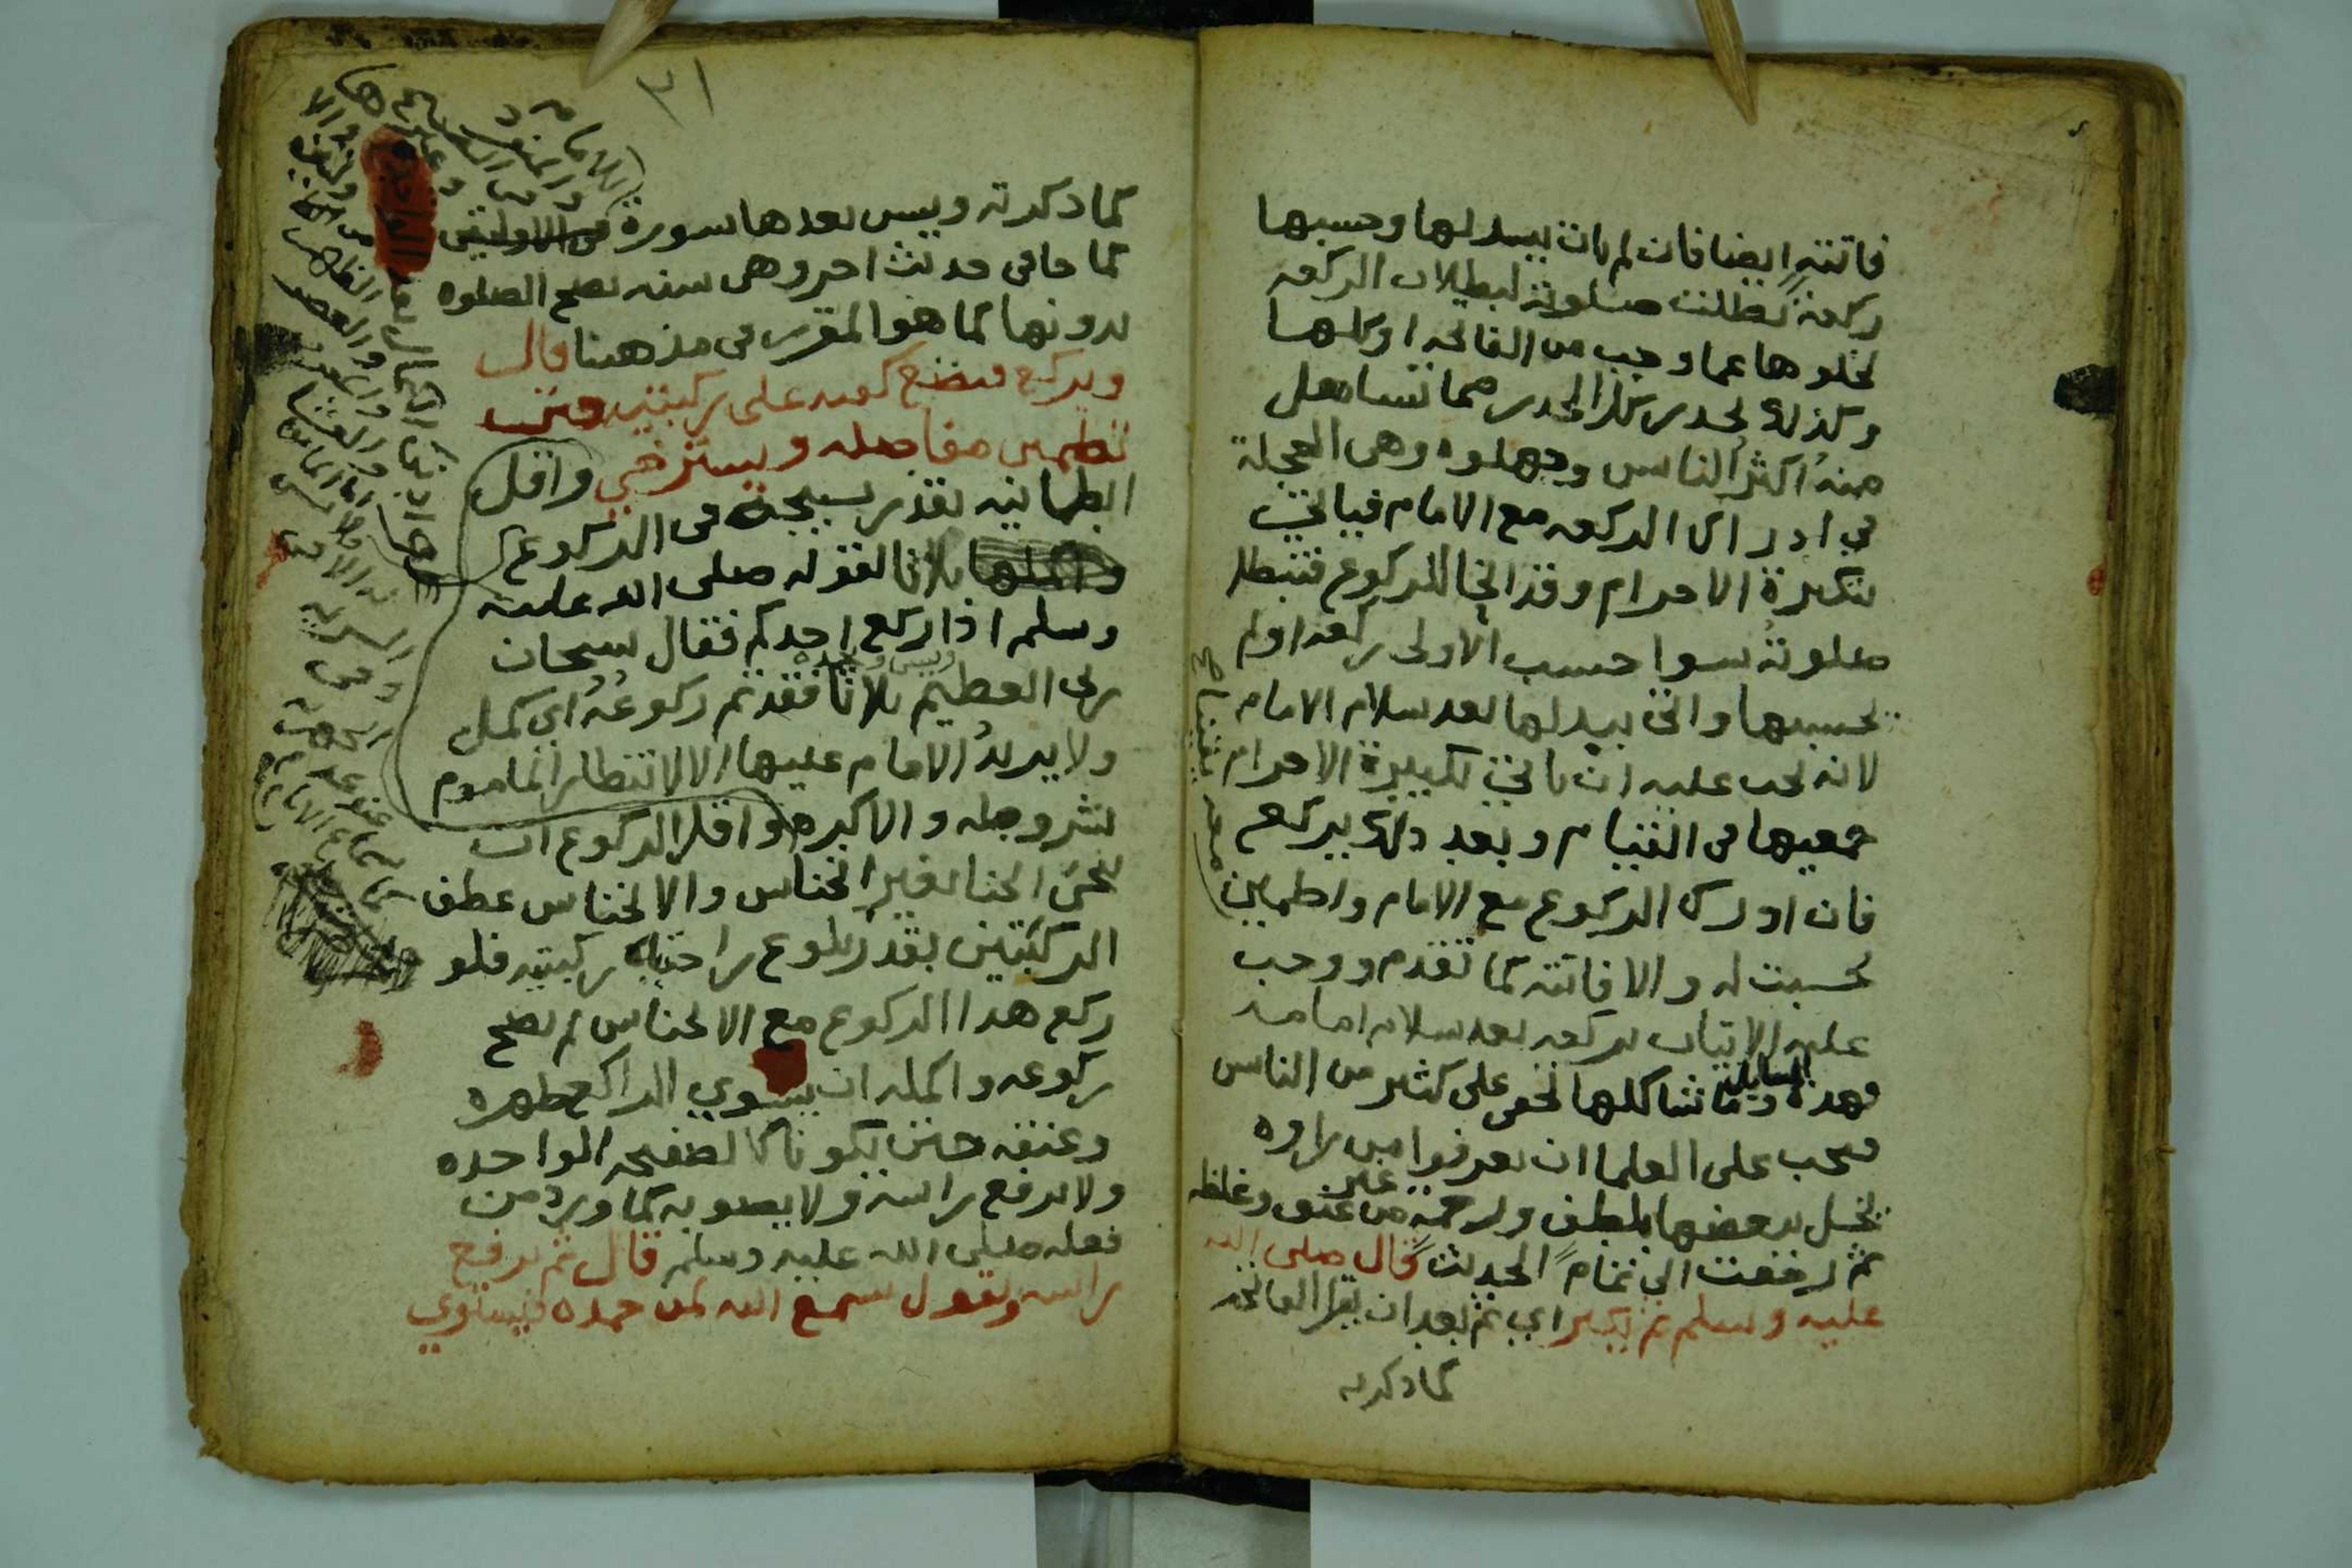 فاتته ايضا فان لم يات ببدلها وحسبها
ركعة بطلت صلوته لبطلان الركعه
لخلوها عما وجب من الفاتحه او كلها
وكذلك يحذر كل الحذر مما تساهل
منه اكثر الناس وجهلوه وهي العجلة
في ادراك الركعه مع الامام فياتي
بتكبيرة الاحرام وقد انحنا للركوع فتبطل
صلوته سوا حسب الاولى ركعه او لم
يحسبها واتى ببدلها بعد سلام الامام
لانه يجب عليه ان ياتي بتكبيرة الاحرام
جميعها في القيام وبعد ذلك يركع
فان ادرك الركوع مع الامام واطماين
معه يقينا صح
حسبت له والا فاتته كما تقدم ووجب
عليه الاتيان بركعه بعد سلام امامه
فهذه المسايل وما شاكلها تخفى على كثير من الناس
فيجب على العلما ان يعرفوا من راوه
يخل ببعضها بلطف ورحمة من غير عنف وغلظه
ثم رجعت الى تمام الحديث قال صلى الله
عليه وسلم ثم يكبر اي ثم بعد ان يقرا الفاتحه
كما ذكرته
٣١
كما ذكرته ويسن بعدها سورة في الاوليتين
كما جا في حديث اخر وهي سنه تصح الصلوه
بدونها كما هو المقرر في مذهبنا قال
ويركع فيضع كفيه على ركبتيه حتى
تطمين مفاصله ويسترخي واقل
الطمانينه بقدر تسبيحة في الركوع
واكملها ثلاثا لقوله صلى الله عليه
وسلم اذا ركع احدكم فقال سبحان
ربي العظيم وبحمده ثلاثا فقد تم ركوعه اي كمل
ولا يزيد الامام عليها الا لانتظار الماموم
بشروطه والا كره واقل الركوع ان
ينحني انحنا بغير انخناس والانخناس عطف
الركبتين بقدر بلوغ راحتيه ركبتيه فلو
ركع هذا الركوع مع الانخناس لم يصح
ركوعه واكمله ان يسوي الراكع ظهره
وعنقه حتى يكونا كالصفيحه الواحده
ولا يرفع راسه ولا يصوبه كما ورد من
فعله صلى الله عليه وسلم قال ثم يرفع
راسه ويقول سمع الله لمن حمده فيستوي
للامام
والمنفرد
في
وغيرها
من
الظهر
والعصر
والمغرب
والعشا
اما الماموم
فلا تسن
له الا في
السريه
وفي
الجهريه